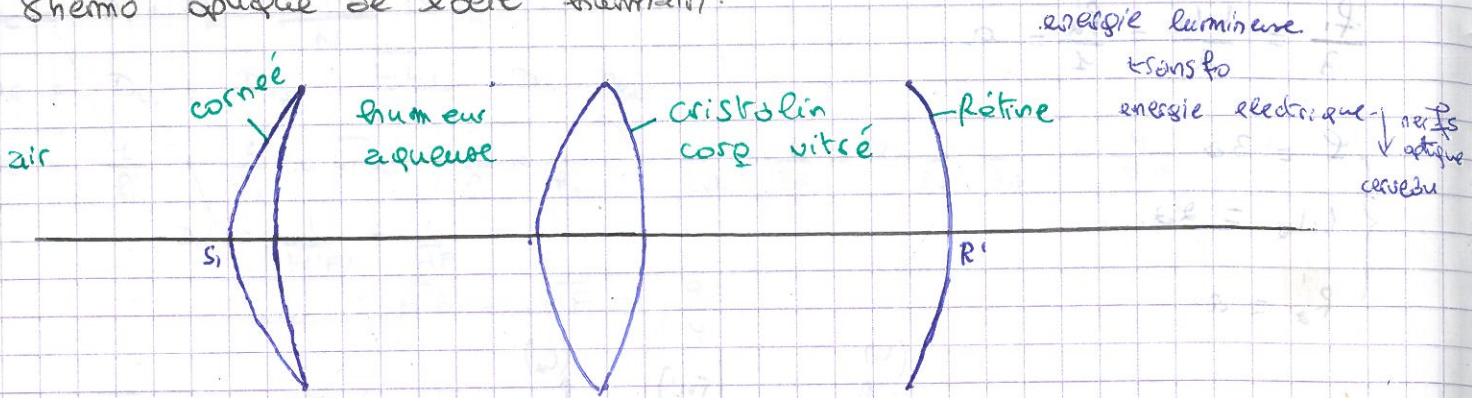 Shémo optique de l'oeil humain.
energie lumineuse
transfo
energie electrique nerfs optique
cerveau
cornée
humeur
aqueuse
cristalin
corp vitré
Rétine
air
S₁
R'